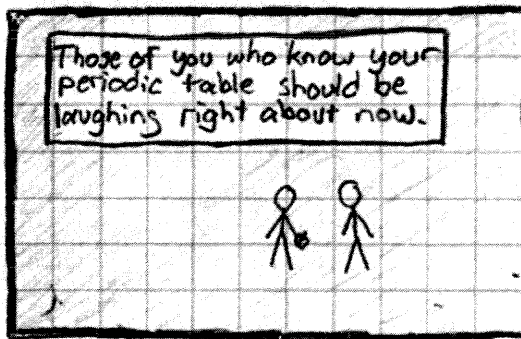 Those of you who know your
periodic table should be
laughing right about now.